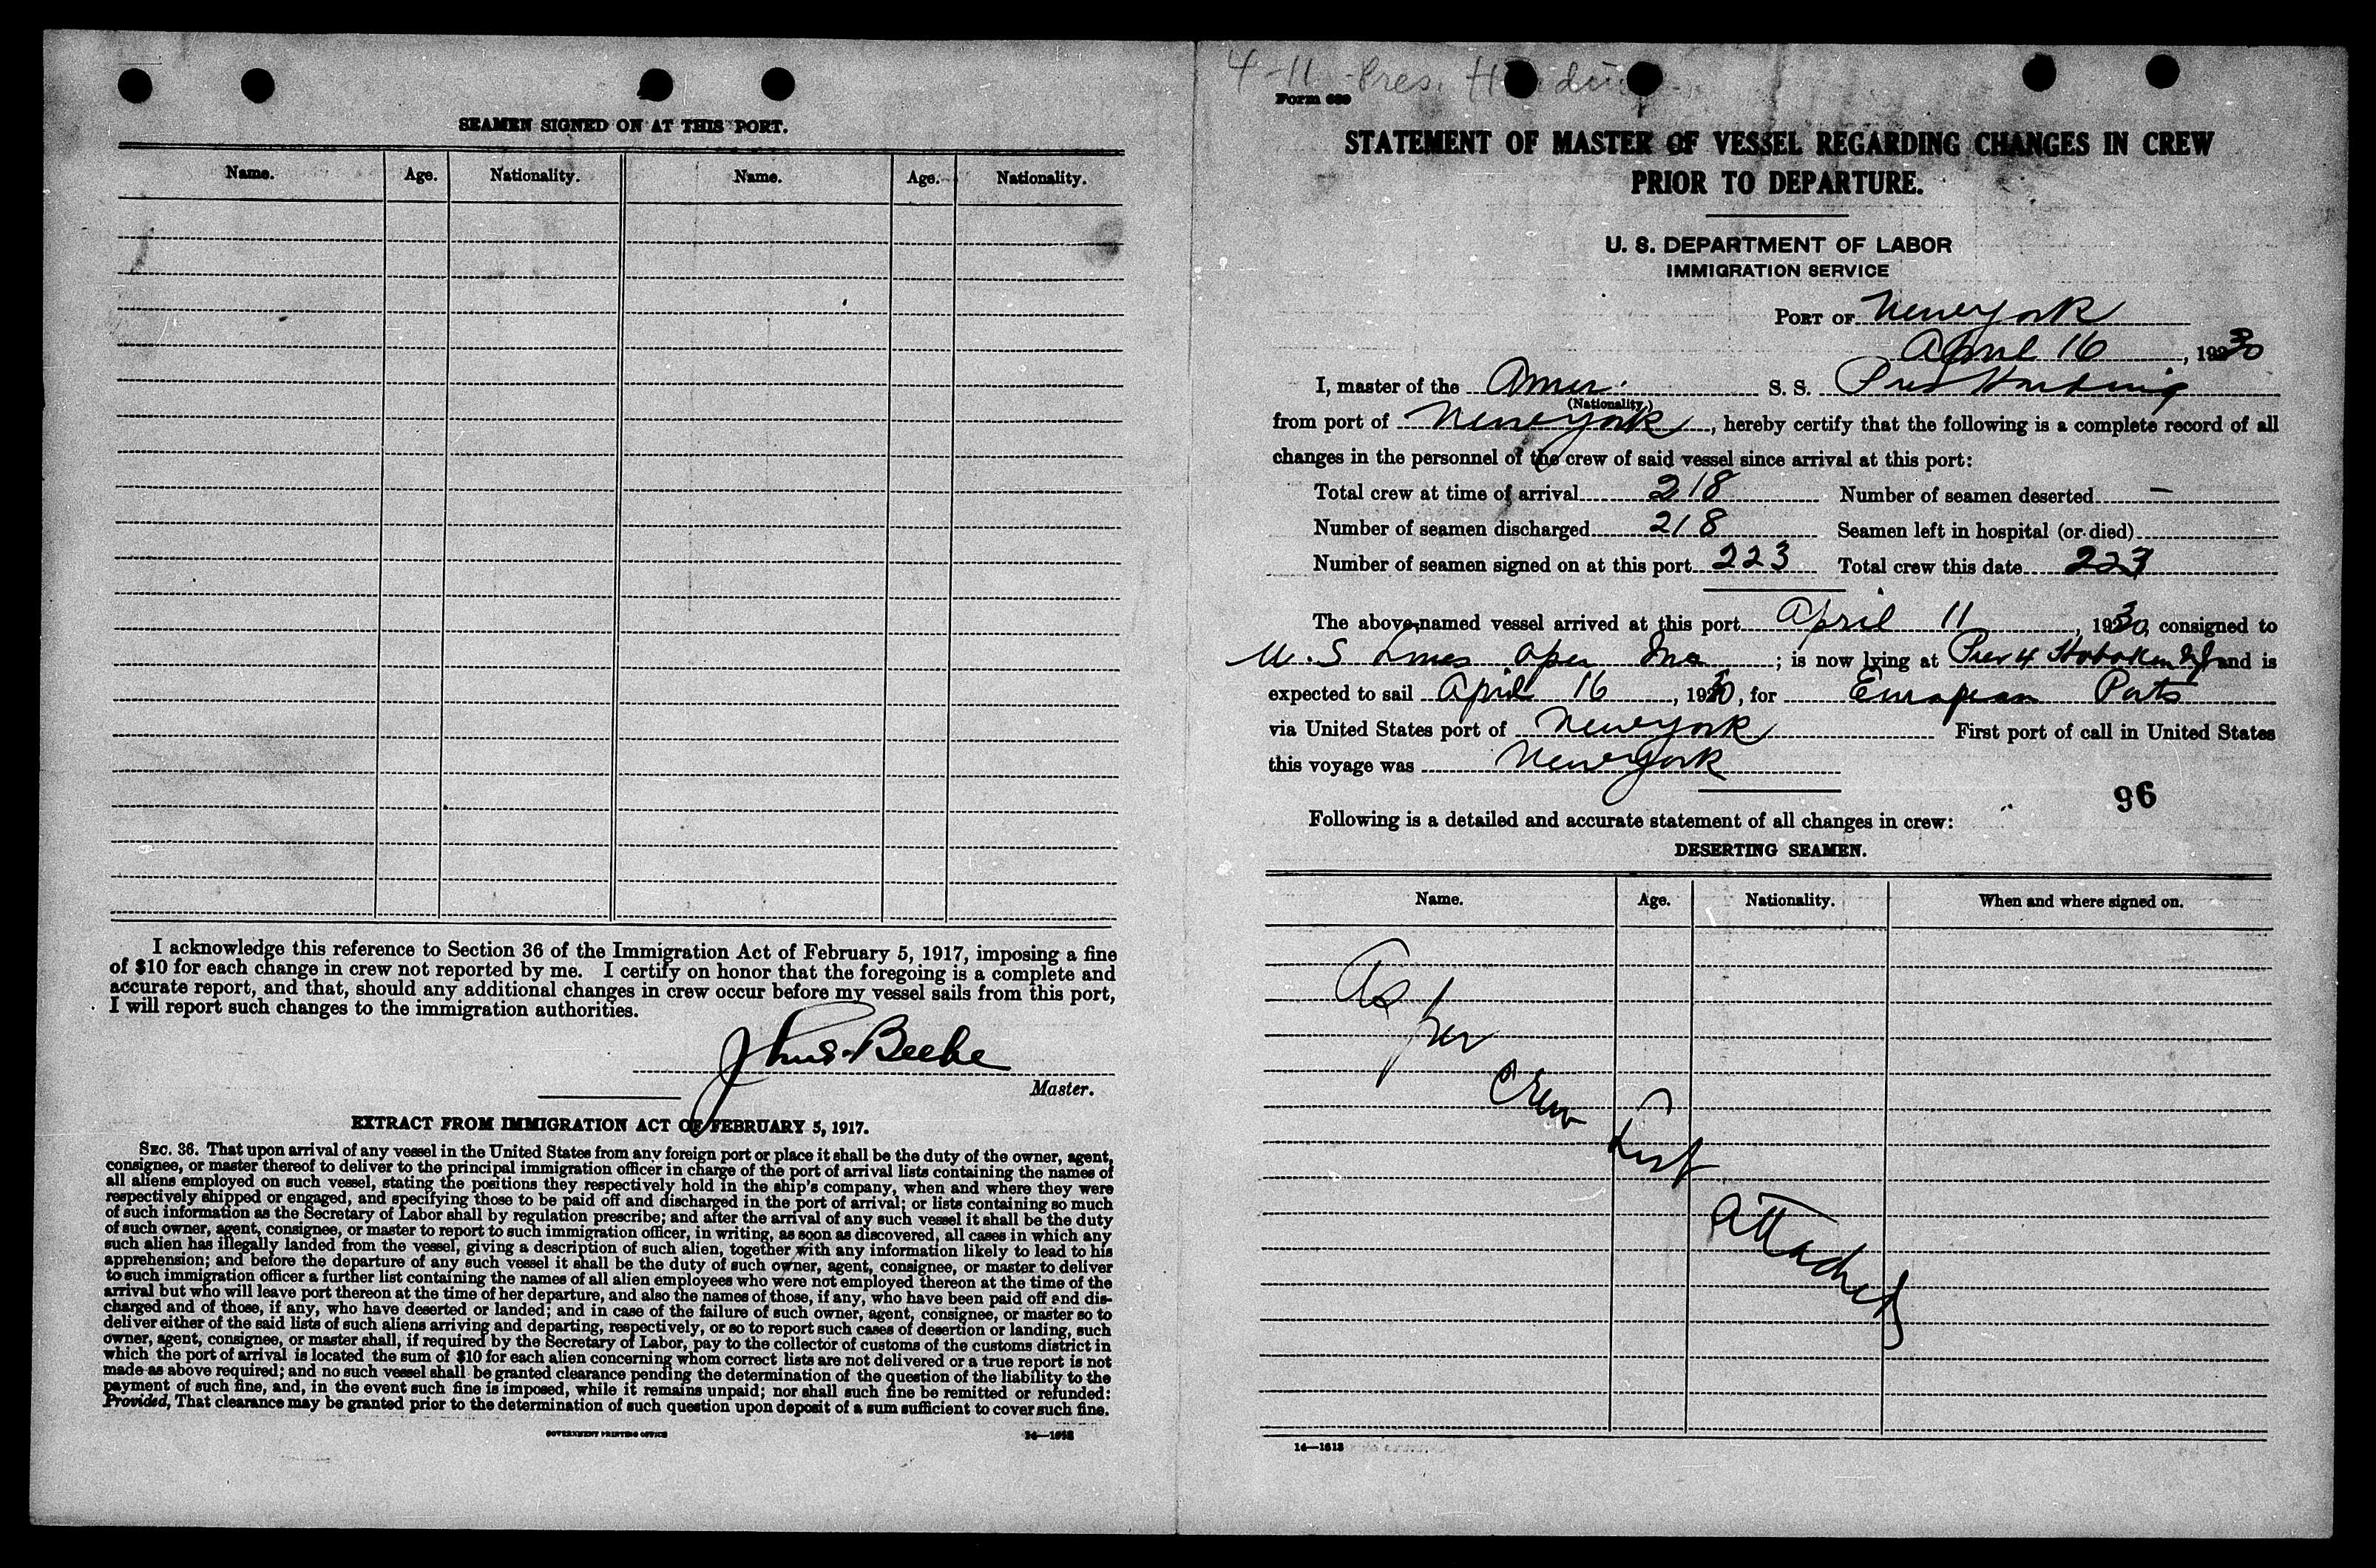 SEAMEN SIGNED ON AT THIS PORT.
Name. Age. Nationality. Name. Age. Nationality.
I acknowledge this reference to Section 36 of the Immigration Act of February 5, 1917, imposing a fine
of $10 for each change in crew not reported by me. I certify on honor that the foregoing is a complete and
accurate report, and that, should any additional changes in crew occur before my vessel sails from this port,
I will report such changes to the immigration authorities.
Beebe
Master.
EXTRACT FROM IMMIGRATION ACT OF FEBRUARY 5, 1917.
SEC. 36. That upon arrival of any vessel in the United States from any foreign port or place it shall be the duty of the owner, agent,
consignee, or master thereof to deliver to the principal immigration officer in charge of the port of arrival lists containing the names of
all aliens employed on such vessel, stating the positions they respectively hold in the ship's company, when and where they were
respectively shipped or engaged, and specifying those to be paid off and discharged in the port of arrival; or lists containing so much
of such information as the Secretary of Labor shall by regulation prescribe; and after the arrival of any such vessel it shall be the duty
of such owner, agent, consignee, or master to report to such immigration officer, in writing, as soon as discovered, all cases in which any
such alien has illegally landed from the vessel, giving a description of such alien, together with any information likely to lead to his
apprehension; and before the departure of any such vessel it shall be the duty of such owner, agent, consignee, or master to deliver
to such immigration officer a further list containing the names of all alien employees who were not employed thereon at the time of the
arrival but who will leave port thereon at the time of her departure, and also the names of those, if any, who have been paid off and dis-
charged and of those, if any, who have deserted or landed; and in case of the failure of such owner, agent, consignee, or master so to
deliver either of the said lists of such aliens arriving and departing, respectively, or so to report such cases of desertion or landing, such
owner, agent, consignee, or master shall, if required by the Secretary of Labor, pay to the collector of customs of the customs district in
which the port of arrival is located the sum of $10 for each alien concerning whom correct lists are not delivered or a true report is not
made as above required; and no such vessel shall be granted clearance pending the determination of the question of the liability to the
payment of such fine, and, in the event such fine is imposed, while it remains unpaid; nor shall such fine be remitted or refunded:
Provided, That clearance may be granted prior to the determination of such question upon deposit of a sum sufficient to cover such fine.
GOVERNMENT PRINTING OFFICE 14—1613
4-11 Pres. Harding
Form 689
STATEMENT OF MASTER OF VESSEL REGARDING CHANGES IN CREW
PRIOR TO DEPARTURE.
U. S. DEPARTMENT OF LABOR
IMMIGRATION SERVICE
PORT OF New York
April 16, 1930
I, master of the Amer. S. S. Pres Harding
(Nationality.)
from port of New York, hereby certify that the following is a complete record of all
changes in the personnel of the crew of said vessel since arrival at this port:
Total crew at time of arrival 218 Number of seamen deserted —
Number of seamen discharged 218 Seamen left in hospital (or died)
Number of seamen signed on at this port 223 Total crew this date 223
The above-named vessel arrived at this port April 11, 1930, consigned to
U. S Lines Oper Inc; is now lying at Pier 4 Hoboken NJ and is
expected to sail April 16, 1930, for European Ports
via United States port of New York First port of call in United States
this voyage was New York
96
Following is a detailed and accurate statement of all changes in crew:
DESERTING SEAMEN.
Name. Age. Nationality. When and where signed on.
As
per
Crew
List
attached
14—1613